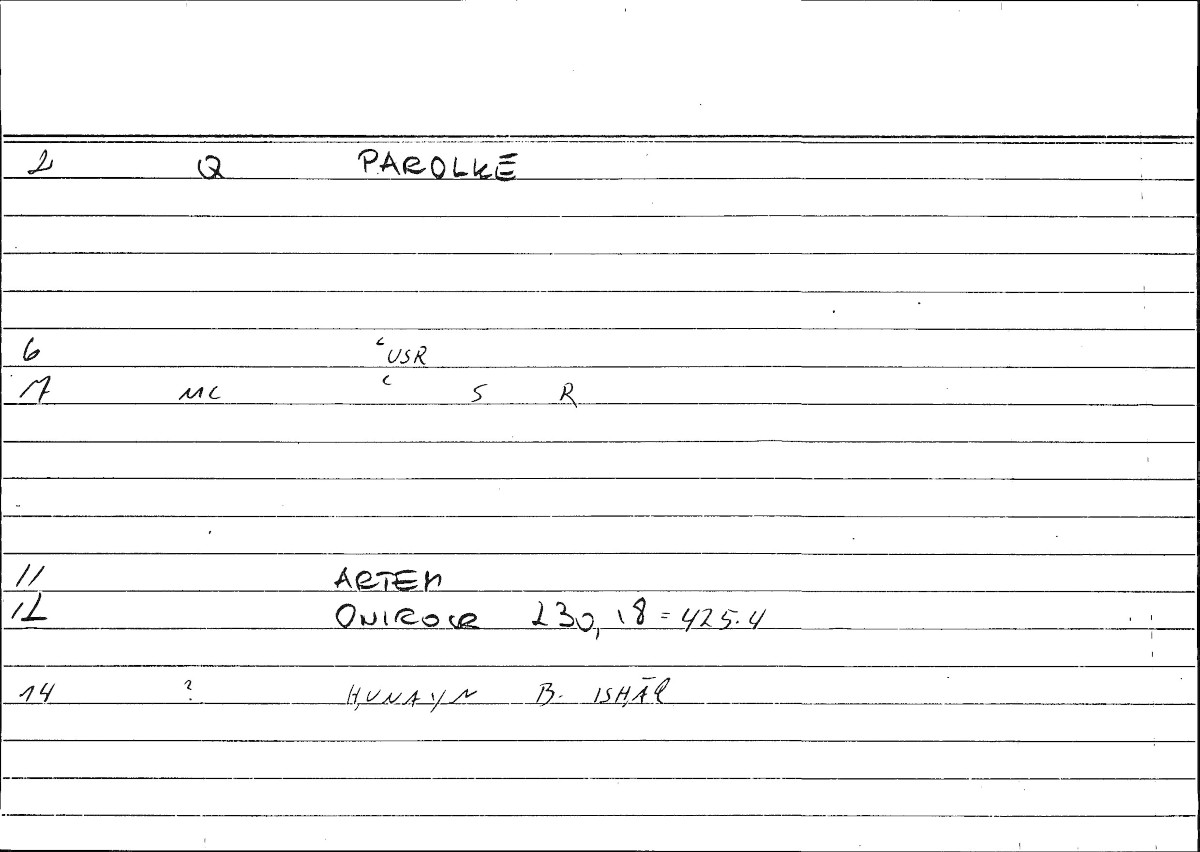 2 Q PAROLKĒ
6 ʿUSR
7 MC ʿ S R
11 ARTEM
12 ONIROCR 230,18 = 425.4
14 ? ḤUNAYN B. ISḤĀQ